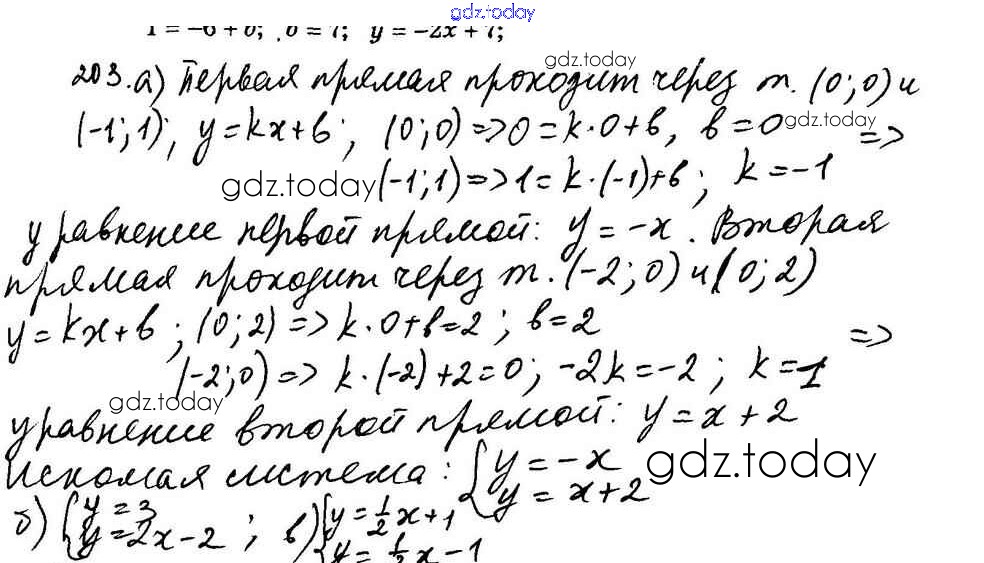 gdz.today
1 = -6 + b; b = 7; y = -2x + 7;
gdz.today
203. а) Первая прямая проходит через т. (0; 0) и
(-1; 1); y = kx + b; (0; 0) => 0 = k · 0 + b, b = 0 gdz.today =>
gdz.today (-1; 1) => 1 = k · (-1) + b; k = -1
уравнение первой прямой: y = -x. Вторая
прямая проходит через т. (-2; 0) и (0; 2)
y = kx + b; (0; 2) => k · 0 + b = 2; b = 2 =>
(-2; 0) => k · (-2) + 2 = 0; -2k = -2; k = 1
gdz.today
уравнение второй прямой: y = x + 2
Искомая система: { y = -x gdz.today
y = x + 2
б) { y = 3 ; в) { y = 1/2 x + 1
y = 2x - 2 y = 1/2 x - 1